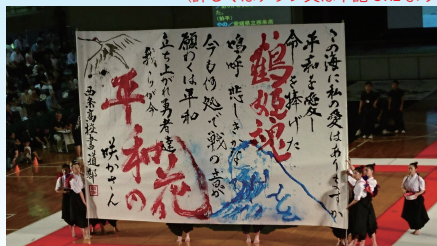 この海に私の愛はありますか
平和を愛し
命捧げた
鶴姫魂
嗚呼 悲しきかな
今も何処で戦の音が
願わくは平和
立ち上がれ勇者達
我らが今
平和の花
咲かせん
西条高校書道部